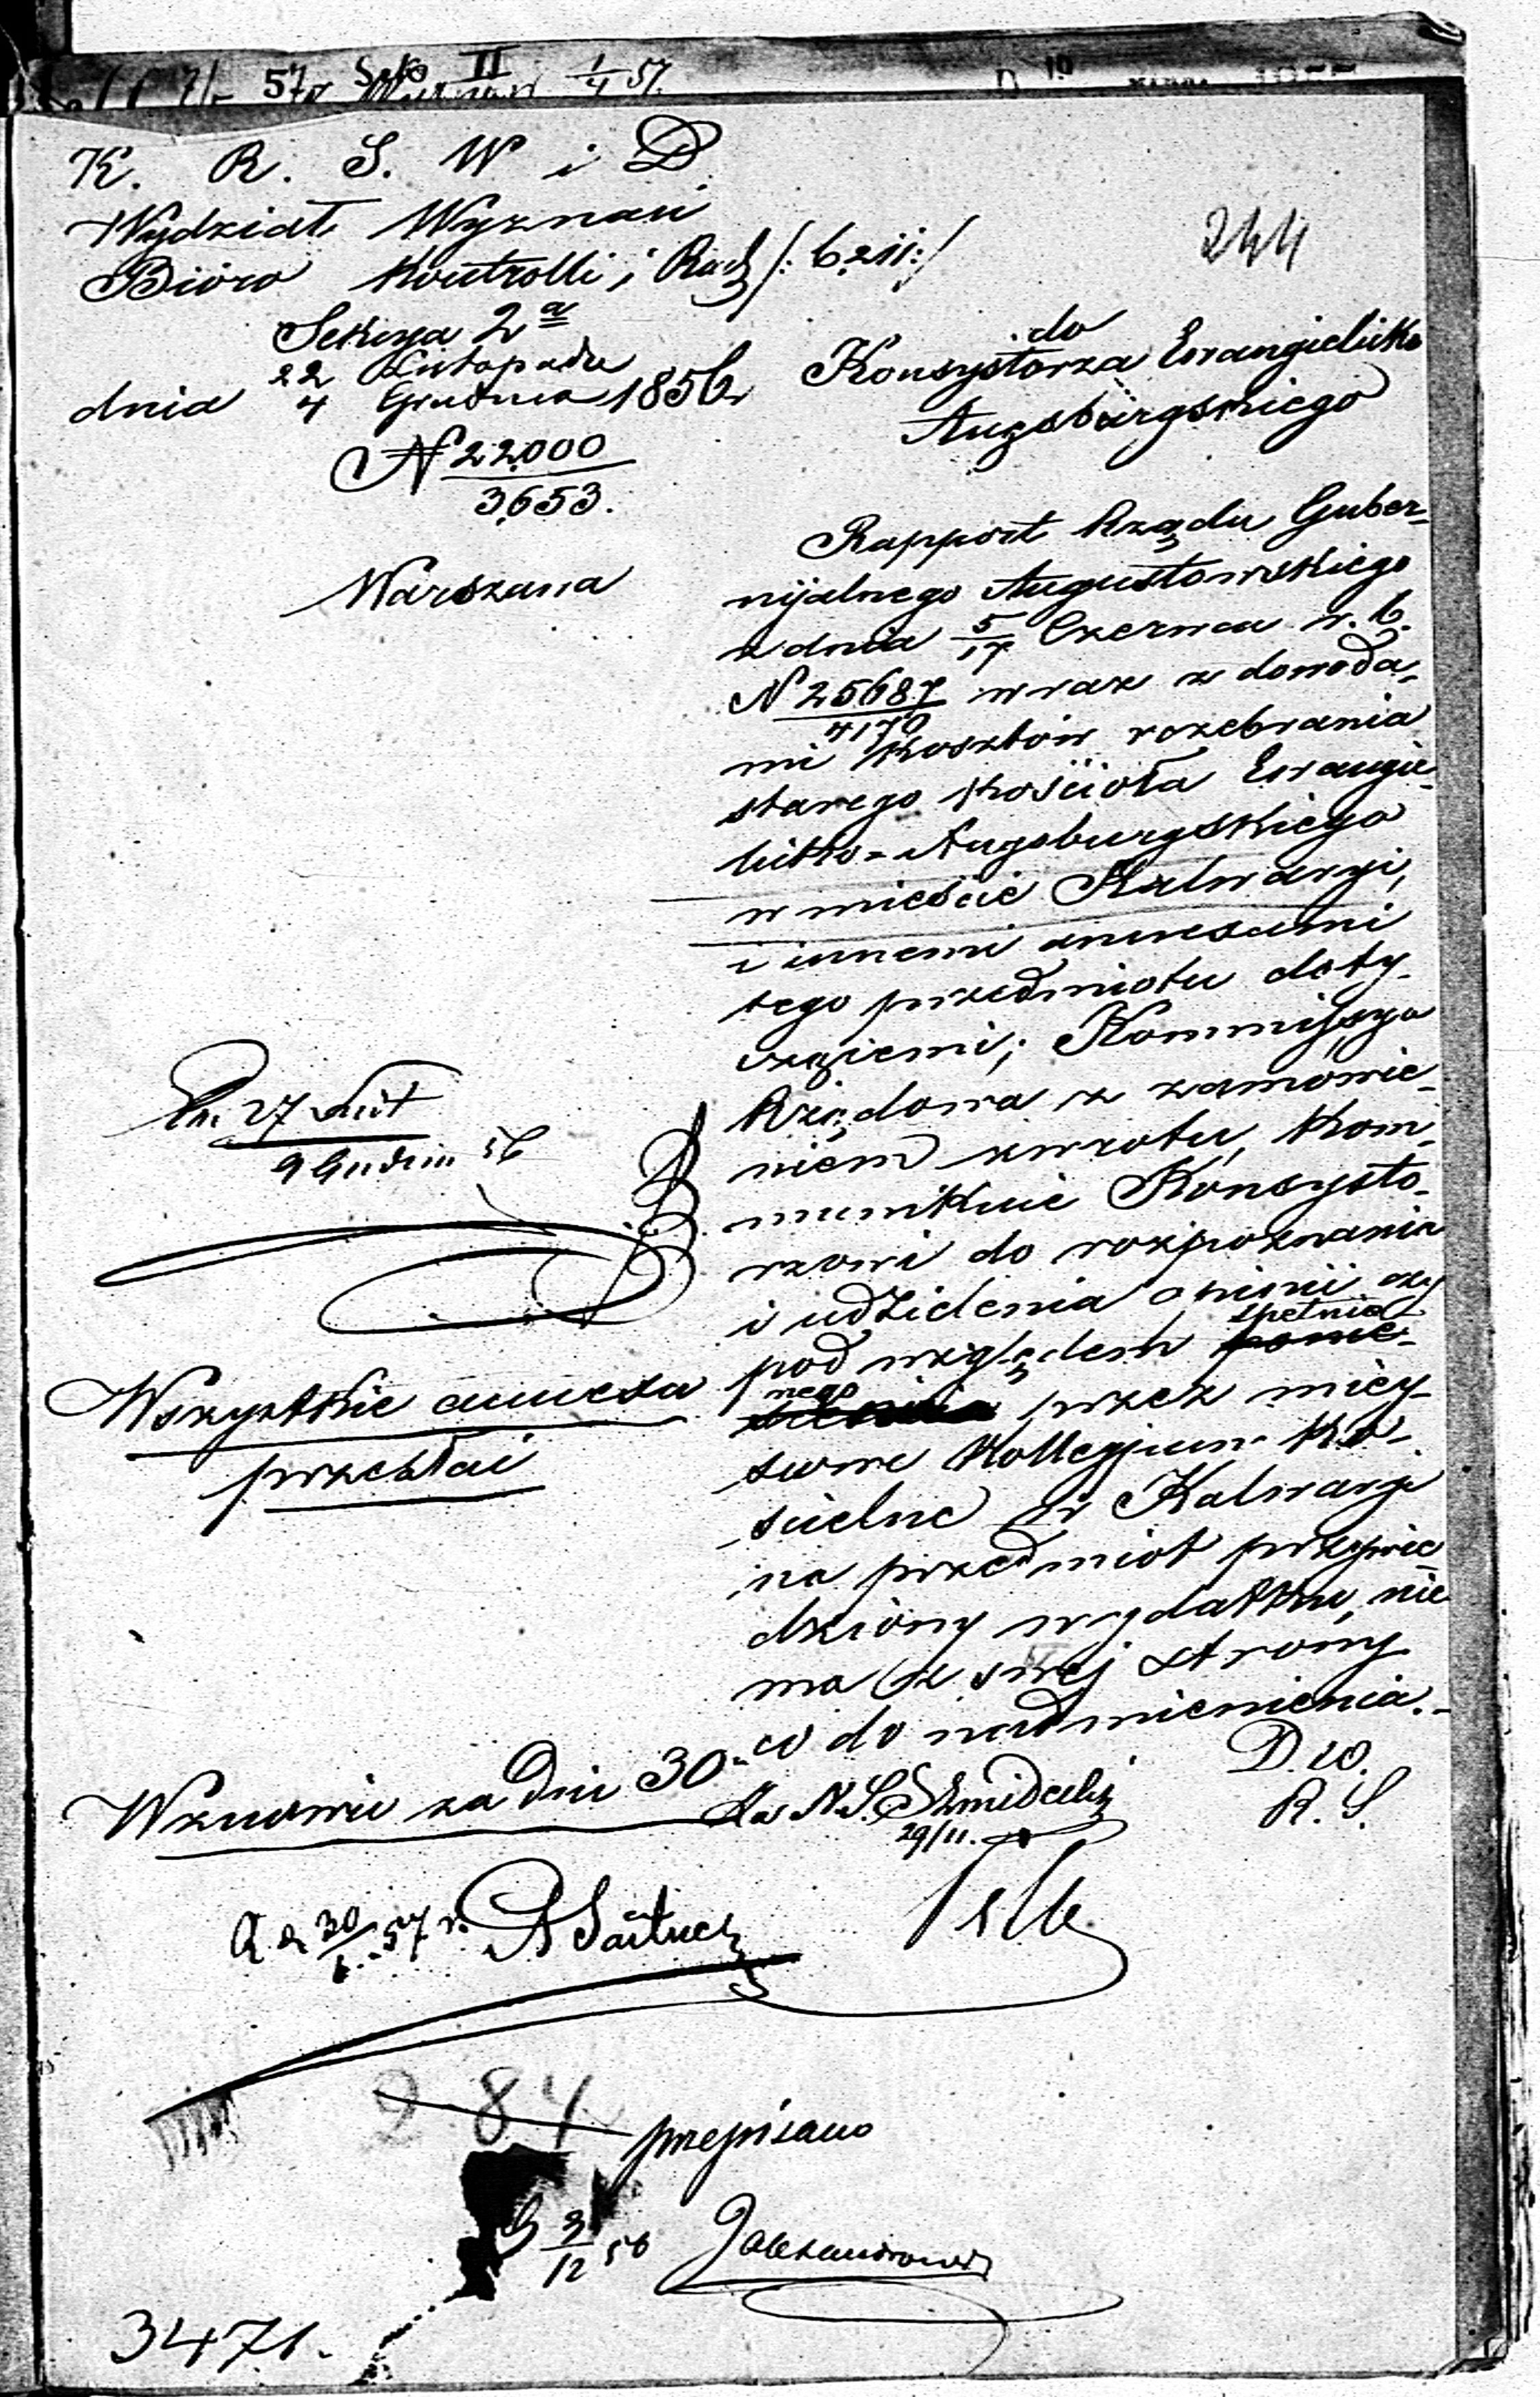 K. R. S. W i D
Wydział Wyznań
Bióro Kontrolli i Rach
Sekcya 2ª
dnia 22 Listopada
4 Grudnia 1856
N 22000
3653.
Warszawa
244
do
Konsystorza Ewangielicko
Augsburgskiego
Rapport Rządu Guber-
nijalnego Augustowskiego
z dnia 5/17 Czerwca r. b.
N 25687/4170 wraz z dowoda-
mi kosztów rozebrania
starego kościoła Ewangie-
licko=Augsburgskiego
w mieście Kalwaryi,
i innemi annexami
tego przedmiotu doty-
czącemi; Kommissya
Rządowa z zamówie-
niem zwrotu, kom-
munikuie Konsysto-
rzowi do rozpoznania
i udzielenia opinii czy
pod względem spełnio
nego przez miey-
scowe Kollegjum Ko-
ścielne w Kalwaryi
na przedmiot przywie-
dziony wydatku, nie
ma z swej strony
co do nadmienienia.-
D. w.
R. S.
9 Grudnia 56
Wszystkie annexa
przesłać
Wznowić za Dni 30
29/11.
284
przepisano
3/12 56
3471.